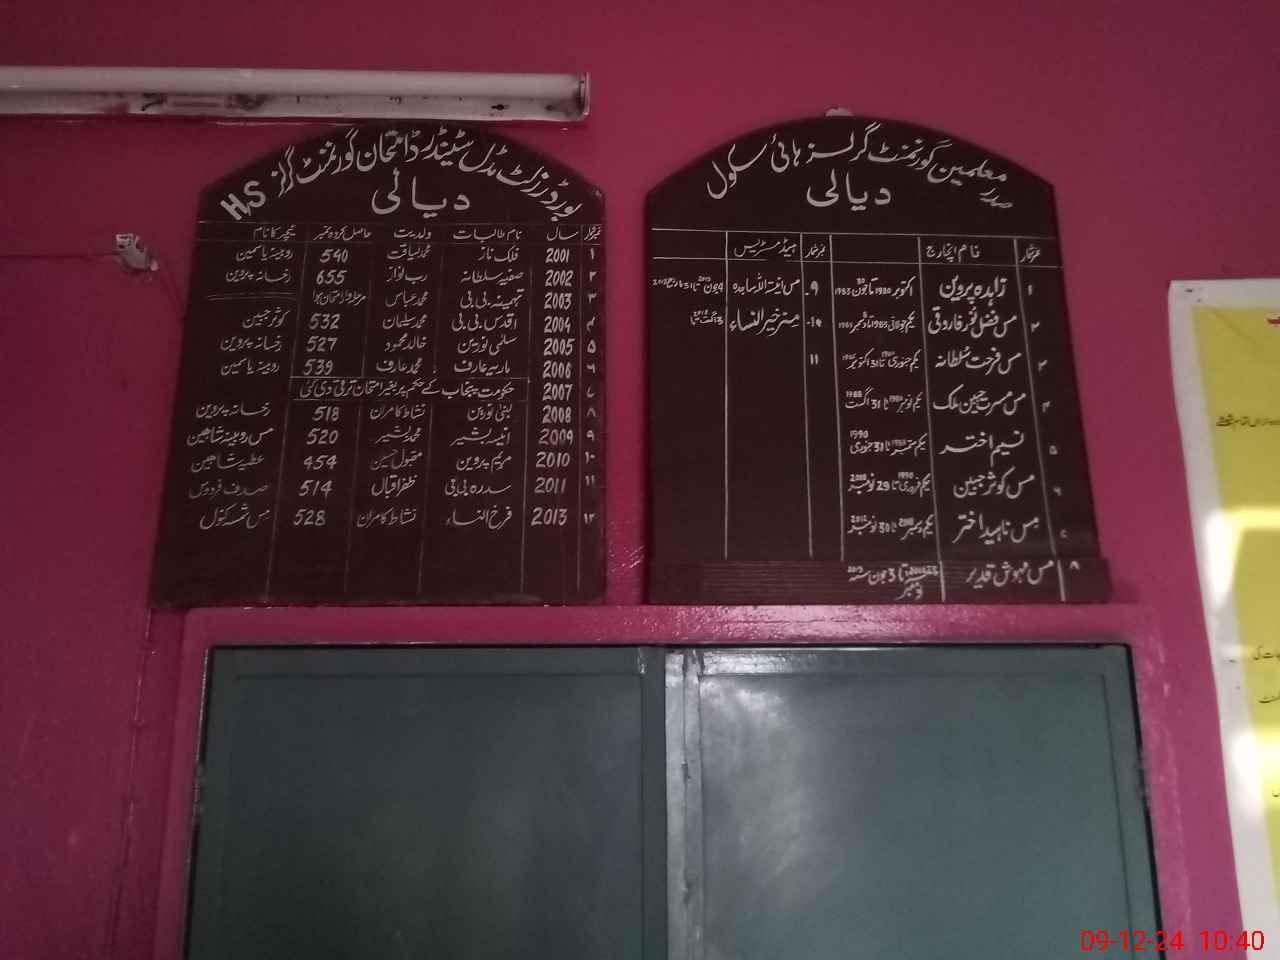 بورڈ رزلٹ مڈل سٹینڈرڈ امتحان گورنمنٹ گرلز H.S
دیالی
نمبر شمار سال نام طالبات ولدیت حاصل کردہ نمبر ٹیچر کا نام
۱ 2001 فلک ناز محمد لیاقت 540 روبینہ یاسمین
۲ 2002 صفیہ سلطانہ رب نواز 655 رخسانہ پروین
۳ 2003 تہمینہ بی بی محمد عباس
۴ 2004 اقدس بی بی محمد سلیمان 532 کوثر جبین
۵ 2005 سلمی نورین خالد محمود 527 رخسانہ پروین
۶ 2006 ماریہ عارف محمد عارف 539 روبینہ یاسمین
۷ 2007 حکومت پنجاب کے حکم پر بغیر امتحان ترقی دی گئی
۸ 2008 لبنی نورین نشاط کامران 518 رخسانہ پروین
۹ 2009 انیسہ بشیر محمد بشیر 520 مس روبینہ شاھین
۱۰ 2010 مریم پروین مقبول حسین 454 عطیہ شاھین
۱۱ 2011 سدرہ بی بی ظفر اقبال 514 صدف فردوس
۱۲ 2013 فرخ النساء نشاط کامران 528 مس شمسہ کنول
صدر معلمین گورنمنٹ گرلز ہائی سکول
دیالی
نمبر شمار نام انچارج نمبر شمار ہیڈمسٹریس
۱ زاہدہ پروین اکتوبر 1980 تا 30 جون 1983 ۹ مس انیسہ اللہ ساجدہ
۲ مس فضل نور فاروقی یکم جولائی 1983 تا دسمبر ۱۰ مسز خیر النساء
۳ مس فرحت سلطانہ یکم جنوری تا 31 اکتوبر ۱۱
۴ مس مسرت جبین ملک یکم نومبر تا 31 اگست 1988
۵ نسیم اختر یکم ستمبر 1988 تا 31 جنوری 1990
۶ مس کوثر جبین یکم فروری 1990 تا 29 نومبر 2008
۷ مس ناہید اختر یکم دسمبر 2008 تا 30 نومبر 2012
۸ مس مہوش قدیر تا 3 جون 2013
09-12-24 10:40